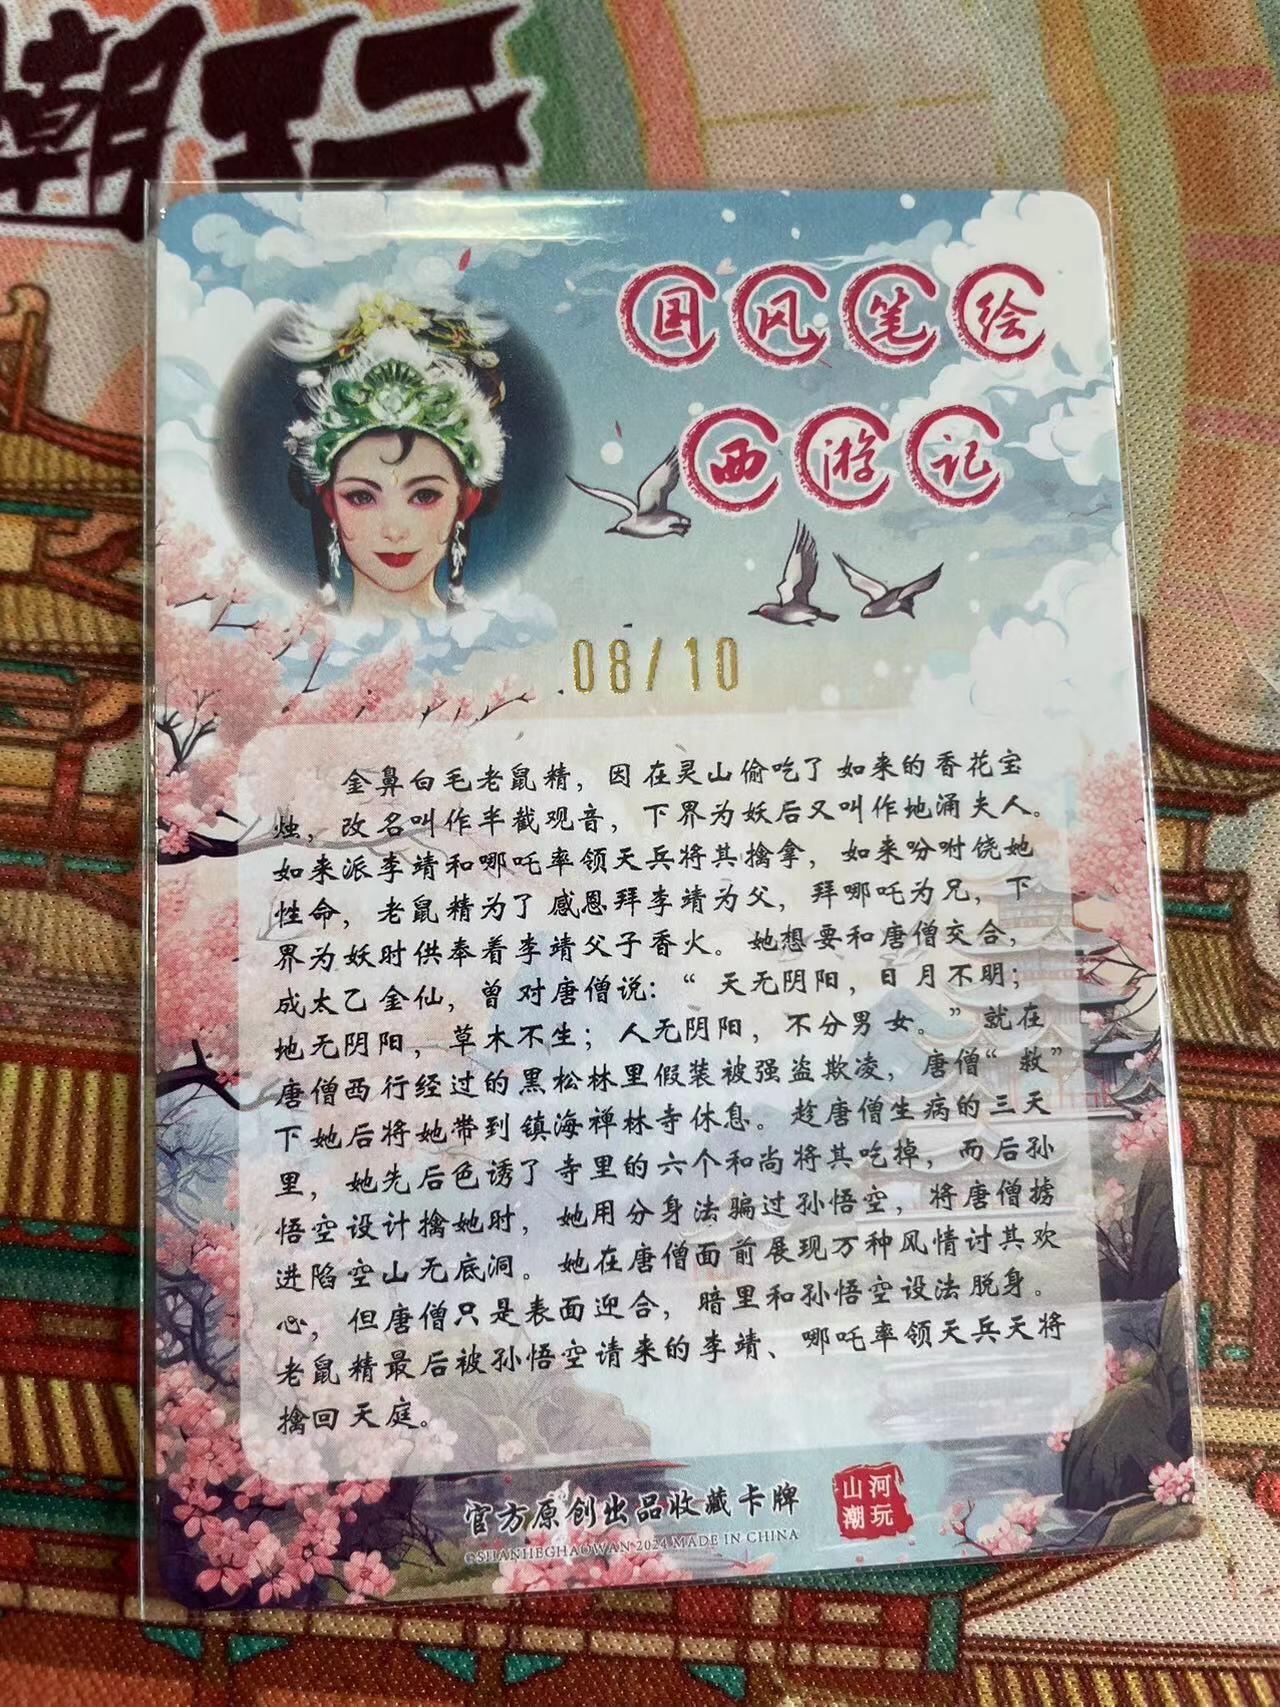 潮玩
国风笔绘
西游记
08/10
金鼻白毛老鼠精，因在灵山偷吃了如来的香花宝
烛，改名叫作半截观音，下界为妖后又叫作地涌夫人。
如来派李靖和哪吒率领天兵将其擒拿，如来吩咐饶她
性命，老鼠精为了感恩拜李靖为父，拜哪吒为兄，下
界为妖时供奉着李靖父子香火。她想要和唐僧交合，
成太乙金仙，曾对唐僧说：“天无阴阳，日月不明；
地无阴阳，草木不生；人无阴阳，不分男女。”就在
唐僧西行经过的黑松林里假装被强盗欺凌，唐僧“救”
下她后将她带到镇海禅林寺休息。趁唐僧生病的三天
里，她先后色诱了寺里的六个和尚将其吃掉，而后孙
悟空设计擒她时，她用分身法骗过孙悟空，将唐僧掳
进陷空山无底洞。她在唐僧面前展现万种风情讨其欢
心，但唐僧只是表面迎合，暗里和孙悟空设法脱身。
老鼠精最后被孙悟空请来的李靖、哪吒率领天兵天将
擒回天庭。
官方原创出品收藏卡牌
©SHANHEGHAOWAN 2024 MADE IN CHINA
山河
潮玩